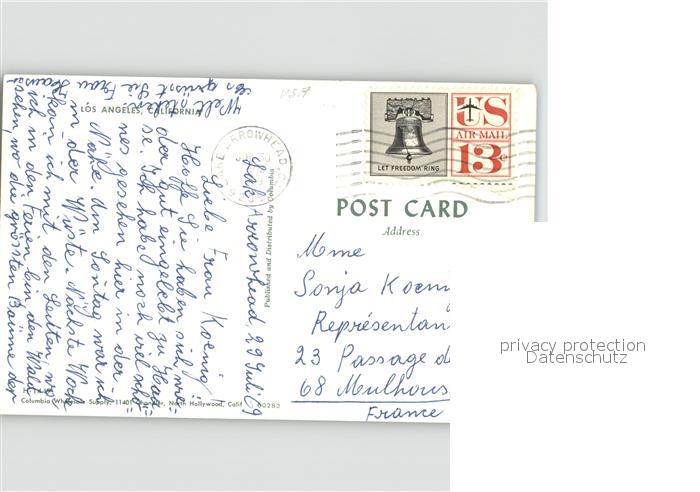 LOS ANGELES, CALIFORNIA
U.S.A
Lake Arrowhead, 29 Juli 69
Liebe Frau Koenig!
Hoffe Sie haben sich wie-
der gut eingelebt zu Hau-
se. Ich habe noch viel schö-
nes gesehen hier in der
Nähe. Am Sonntag war ich
in der Wüste. Nächste Woche
kom ich mit den Leuten, wo
ich in den Ferien bin den Wald
sehen, wo die grössten Bäume der
Welt stehen
Es grüsst Sie Frau
Published and Distributed by Columbia
Columbia Wholesale Supply, 11401 Chandler, North Hollywood, Calif. 60282
LAKE ARROWHEAD
LET FREEDOM RING
US
AIR MAIL
13c
POST CARD
Address
Mme
Sonja Koenig
Représentan
23 Passage d
68 Mulhous
France
privacy protection
Datenschutz